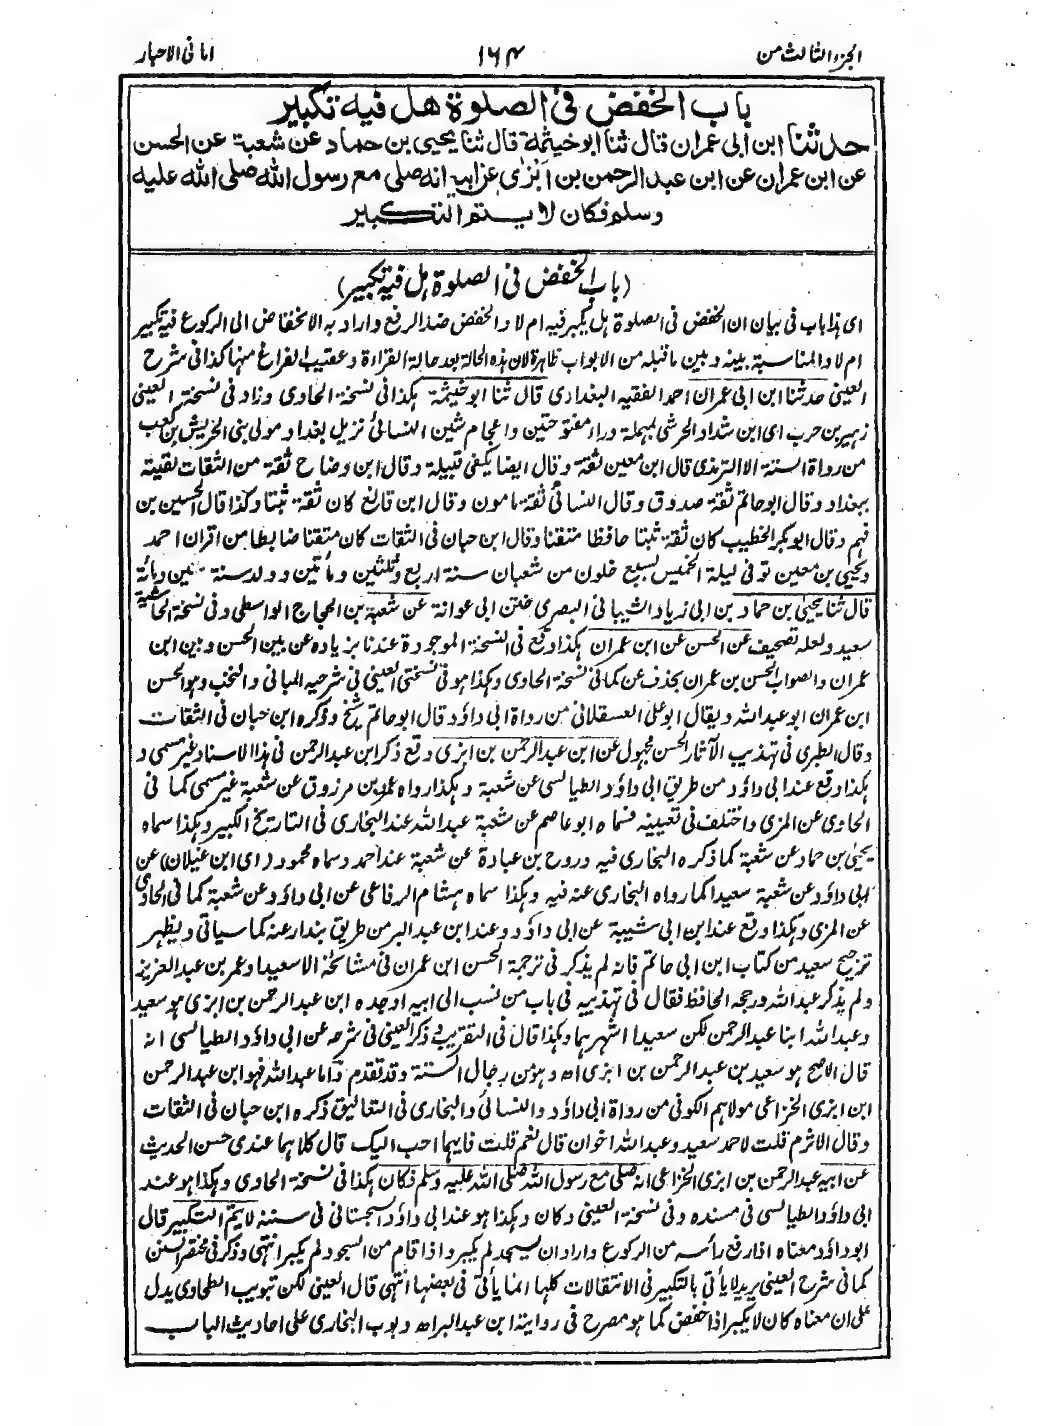 الجزء الثالث من
١٦٤
اماني الاحبار
باب الخفض في الصلوة هل فيه تكبير
حدثنا ابن ابي عمران قال ثنا ابو خيثمة قال ثنا يحيى بن حماد عن شعبة عن الحسن
عن ابن عمران عن ابن عبد الرحمن بن ابزى عن ابيه انه صلى مع رسول الله صلى الله عليه
وسلم فكان لا يتم التكبير
(باب الخفض في الصلوة هل فيه تكبير)
اى هذا باب في بيان ان الخفض في الصلوة هل يكبر فيه ام لا والخفض ضد الرفع واراد به الانخفاض الى الركوع فيه تكبير
ام لا والمناسبة بينه وبين ما قبله من الابواب ظاهرة لان هذه الحالة بعد حالة القراءة وعقيب الفراغ منها كذا في شرح
العيني حدثنا ابن ابي عمران احمد الفقيه البغدادى قال ثنا ابو خيثمة هكذا في نسخة الحاوى وزاد في نسخة العيني
زهير بن حرب اى ابن شداد الحرشي بمهملة وراء مفتوحتين واعجام شين النسائى نزيل بغداد مولى بني الحريش بن كعب
من رواة الستة الا الترمذى قال ابن معين ثقة وقال ايضا يكفى قبيلة وقال ابن وضاح ثقة من الثقات لقيته
ببغداد وقال ابو حاتم ثقة صدوق وقال النسائى ثقة مامون وقال ابن قانع كان ثقة ثبتا وكذا قال الحسين بن
فهم وقال ابو بكر الخطيب كان ثقة ثبتا حافظا متقنا وقال ابن حبان في الثقات كان متقنا ضابطا من اقران احمد
ويحيى بن معين توفى ليلة الخميس لسبع خلون من شعبان سنة اربع وثلثين ومأتين وولد سنة ستين ومائة
قال ثنا يحيى بن حماد بن ابي زياد الشيباني البصرى ختن ابي عوانة عن شعبة بن الحجاج الواسطى وفي نسخة الحاشية
سعيد ولعله تصحيف عن الحسن عن ابن عمران هكذا وقع في النسخة الموجودة عندنا بزيادة عن بين الحسن وبين ابن
عمران والصواب الحسن بن عمران بحذف عن كما في نسخة الحاوى وهكذا هو في نسختى العيني في شرحيه المباني والنخب وهو الحسن
ابن عمران ابو عبد الله ويقال ابو على العسقلاني من رواة ابي داؤد قال ابو حاتم شيخ وذكره ابن حبان في الثقات
وقال الطبرى في تهذيب الآثار الحسن مجهول عن ابن عبد الرحمن بن ابزى وقع ذكر ابن عبد الرحمن في هذا الاسناد غير مسمى و
هكذا وقع عند ابي داؤد من طريق ابي داؤد الطيالسى عن شعبة وهكذا رواه عمرو بن مرزوق عن شعبة غير مسمى كما في
الحاوى عن المزى واختلف في تعيينه فسماه ابو عاصم عن شعبة عبد الله عند البخارى في التاريخ الكبير وهكذا سماه
يحيى بن حماد عن شعبة كما ذكره البخارى فيه وروح بن عبادة عن شعبة عند احمد وسماه محمود (اى ابن غيلان) عن
ابي داؤد عن شعبة سعيدا كما رواه البخارى عنه فيه وهكذا سماه هشام الرفاعى عن ابي داؤد عن شعبة كما في الحاوى
عن المزى وهكذا وقع عند ابن ابي شيبة عن ابي داؤد وعند ابن عبد البر من طريق بندار عنه كما سياتى ويظهر
ترجيح سعيد من كتاب ابن ابي حاتم فانه لم يذكر في ترجمة الحسن ابن عمران في مشائخه الا سعيدا وعمر بن عبد العزيز
ولم يذكر عبد الله ورجحه الحافظ فقال في تهذيبه في باب من نسب الى ابيه او جده ابن عبد الرحمن بن ابزى هو سعيد
وعبد الله ابنا عبد الرحمن لكن سعيدا اشهرهما وهكذا قال في التقريب وذكر العيني في شرحه عن ابي داؤد الطيالسى انه
قال الاصح هو سعيد بن عبد الرحمن بن ابزى اه وهو من رجال الستة وقد تقدم واما عبد الله فهو ابن عبد الرحمن
ابن ابزى الخزاعى مولاهم الكوفى من رواة ابي داؤد والنسائى والبخارى في التعاليق ذكره ابن حبان في الثقات
وقال الاثرم قلت لاحمد سعيد وعبد الله اخوان قال نعم قلت فايهما احب اليك قال كلاهما عندى حسن الحديث
عن ابيه عبد الرحمن بن ابزى الخزاعى انه صلى مع رسول الله صلى الله عليه وسلم فكان هكذا في نسخة الحاوى وهكذا هو عند
ابي داؤد الطيالسى في مسنده وفي نسخة العيني وكان وهكذا هو عند ابي داؤد السجستاني في سننه لا يتم التكبير قال
ابو داؤد معناه اذا رفع رأسه من الركوع واراد ان يسجد لم يكبر واذا قام من السجود لم يكبر انتهى وذكر في مختصر السنن
كما في شرح العيني يريد لا يأتى بالتكبير في الانتقالات كلها انما يأتى في بعضها انتهى قال العيني لكن تبويب الطحاوى يدل
على ان معناه كان لا يكبر اذا خفض كما هو مصرح في رواية ابن عبد البر اه وبوب البخارى على احاديث الباب